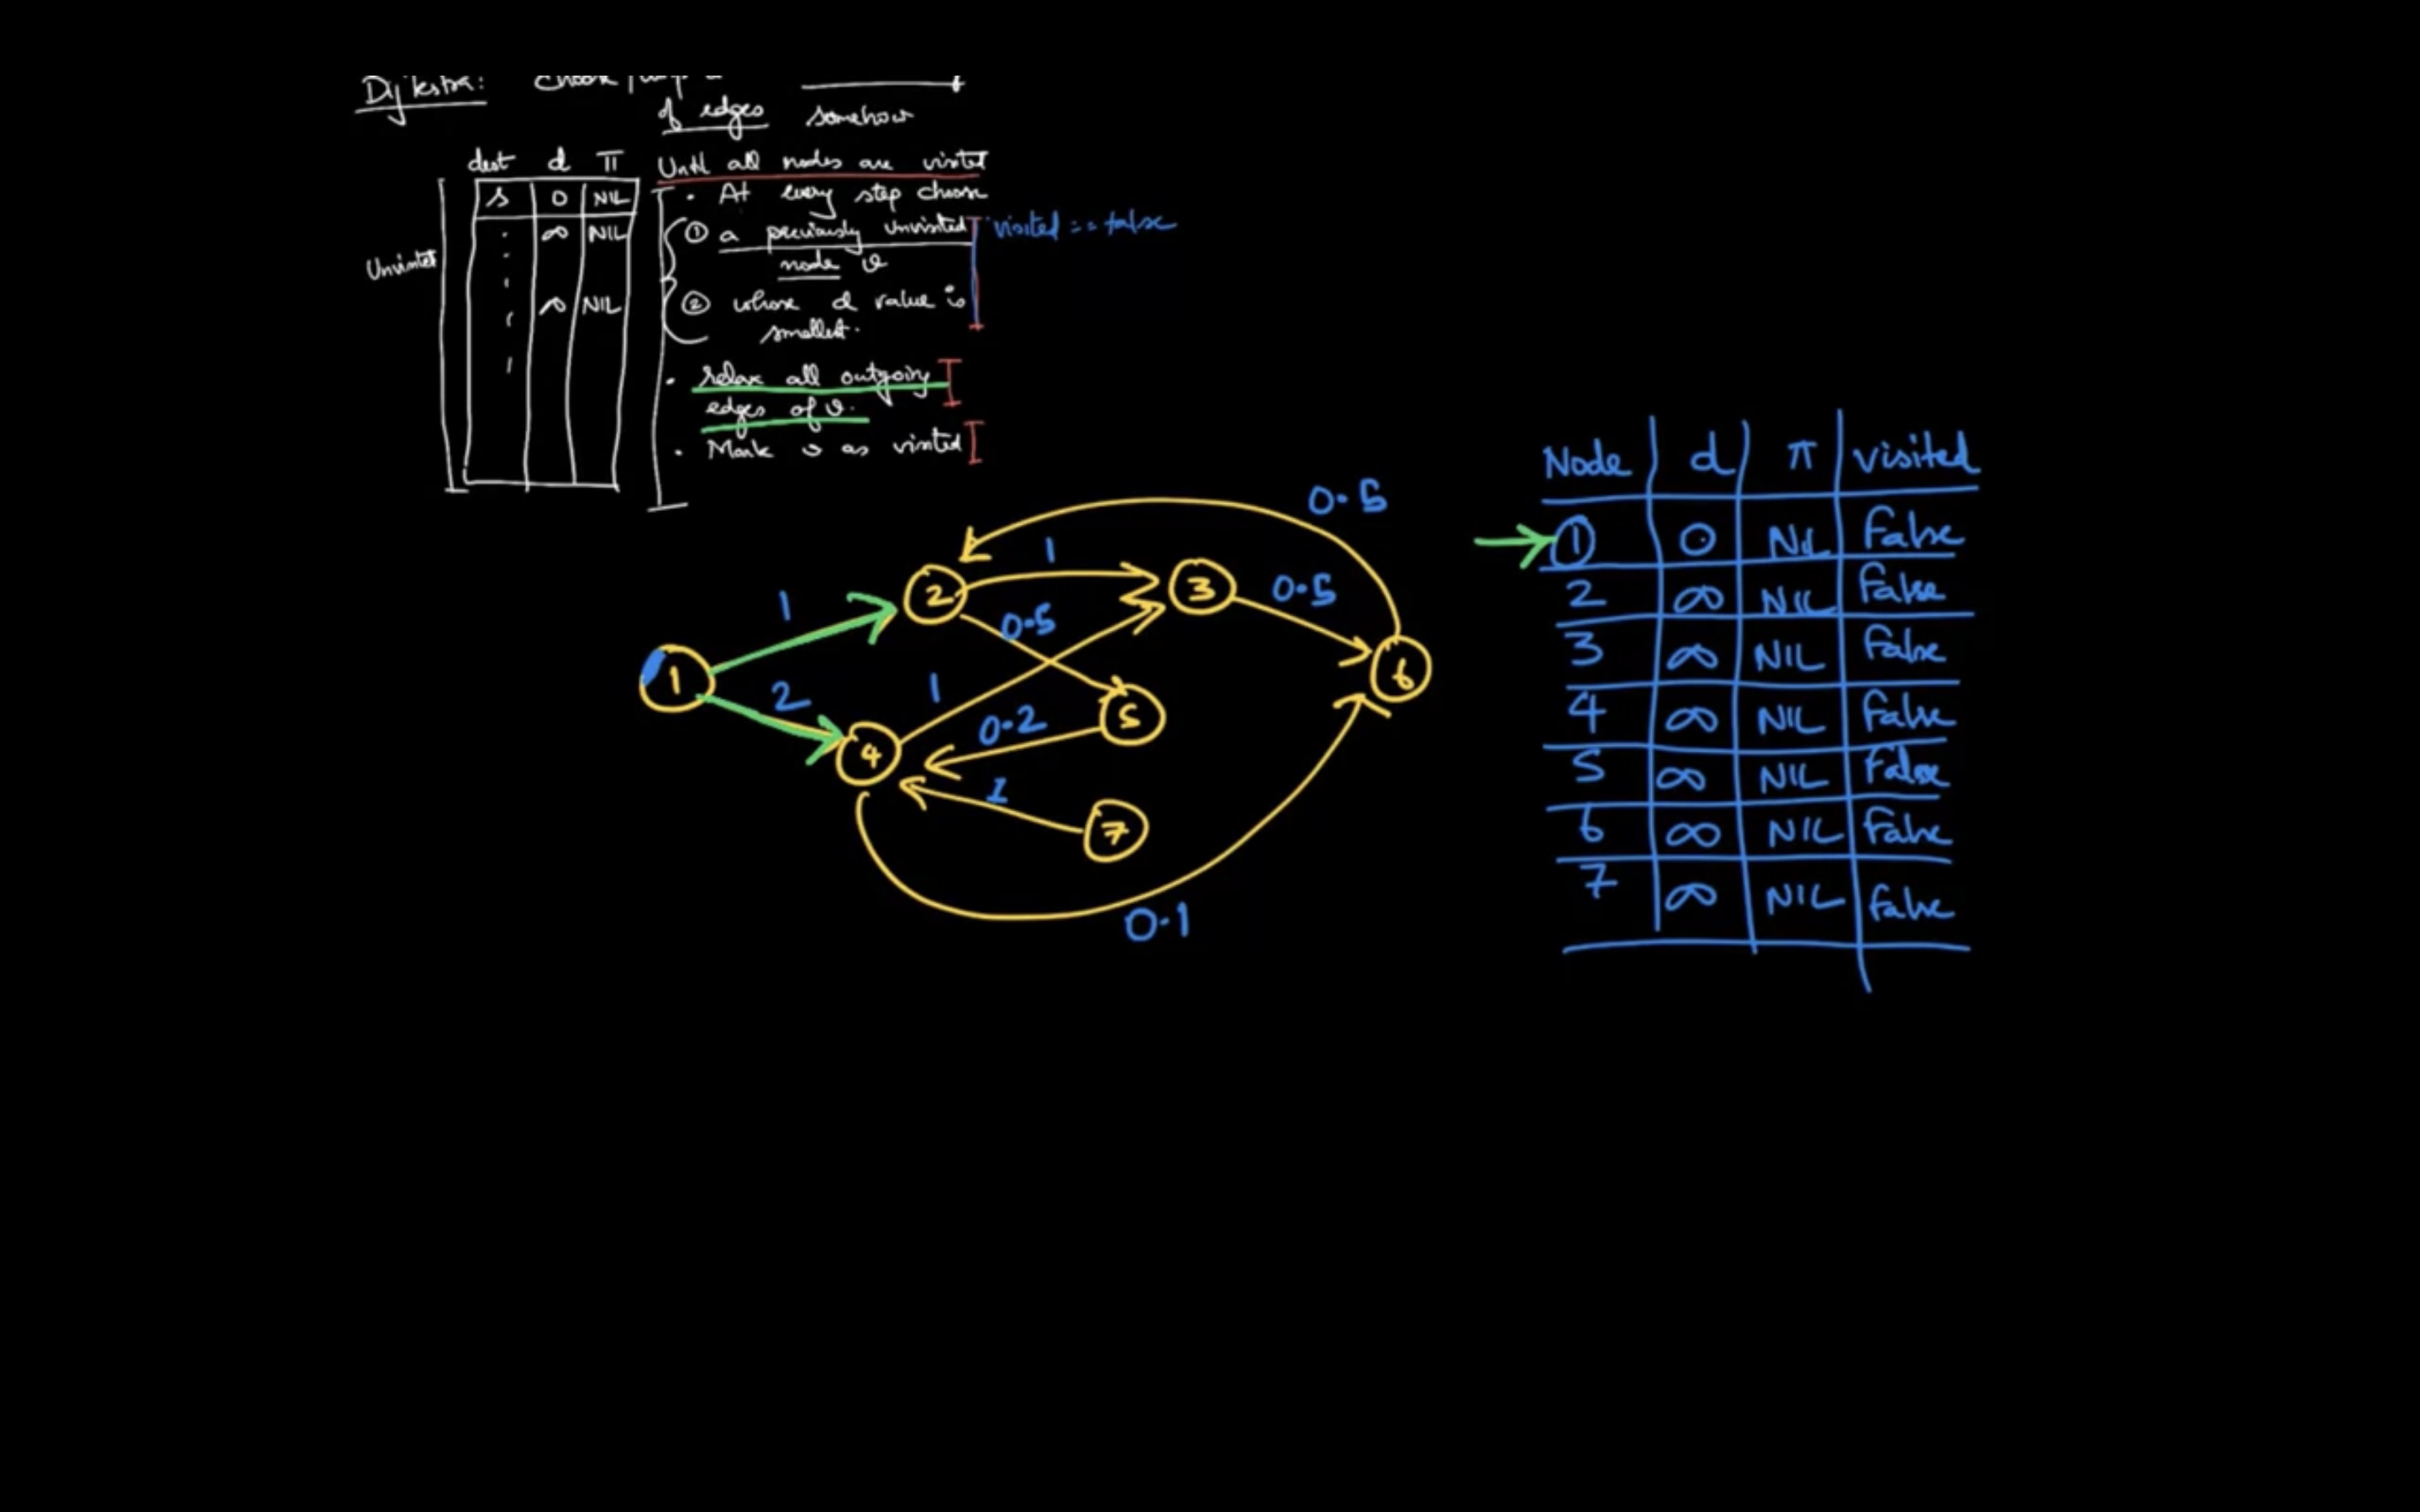 Dijkstra:
of edges somehow
dest d π
s 0 NIL
∞ NIL
∞ NIL
Unvisited
Until all nodes are visited
• At every step choose
① a previously unvisited
node v
visited == false
② whose d value is
smallest.
• relax all outgoing
edges of v.
• Mark v as visited
Node d π visited
1 0 NIL False
2 ∞ NIL False
3 ∞ NIL False
4 ∞ NIL False
5 ∞ NIL False
6 ∞ NIL False
7 ∞ NIL False
0.5
1
2
3
0.5
1
0.5
1
6
2
1
5
4
0.2
1
7
0.1